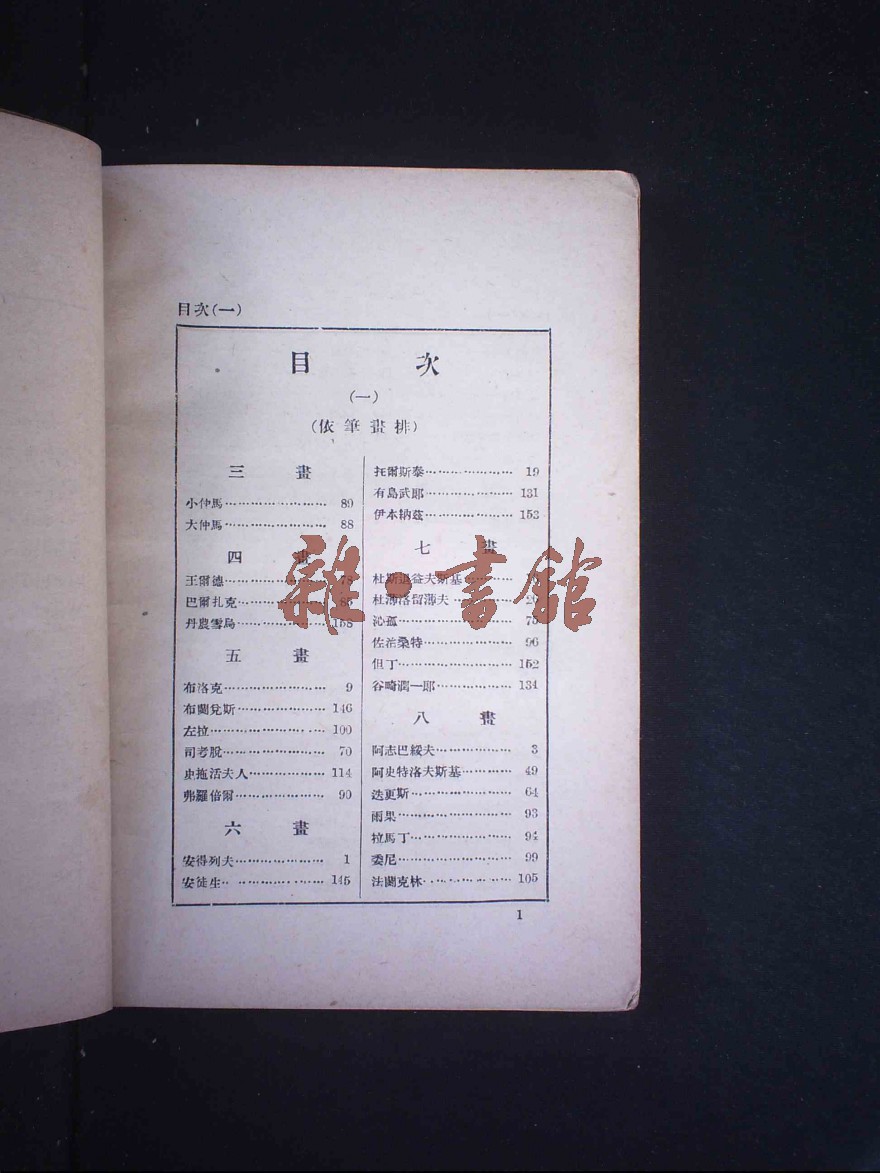 目次(一)
目次
(一)
(依筆畫排)
三畫
小仲馬 89
大仲馬 88
四畫
王爾德 78
巴爾扎克
丹農雪烏 158
五畫
布洛克 9
布蘭兌斯 146
左拉 100
司考脫 70
史拖活夫人 114
弗羅倍爾 90
六畫
安得列夫 1
安徒生 145
托爾斯泰 19
有島武郎 131
伊本納茲 153
七畫
杜斯退益夫斯基
杜薄洛留薄夫
沁孤 75
佐治桑特 96
但丁 152
谷崎潤一郎 134
八畫
阿志巴綏夫 3
阿史特洛夫斯基 49
迭更斯 64
雨果 93
拉馬丁 94
委尼 99
法蘭克林 105
1
雜·書館